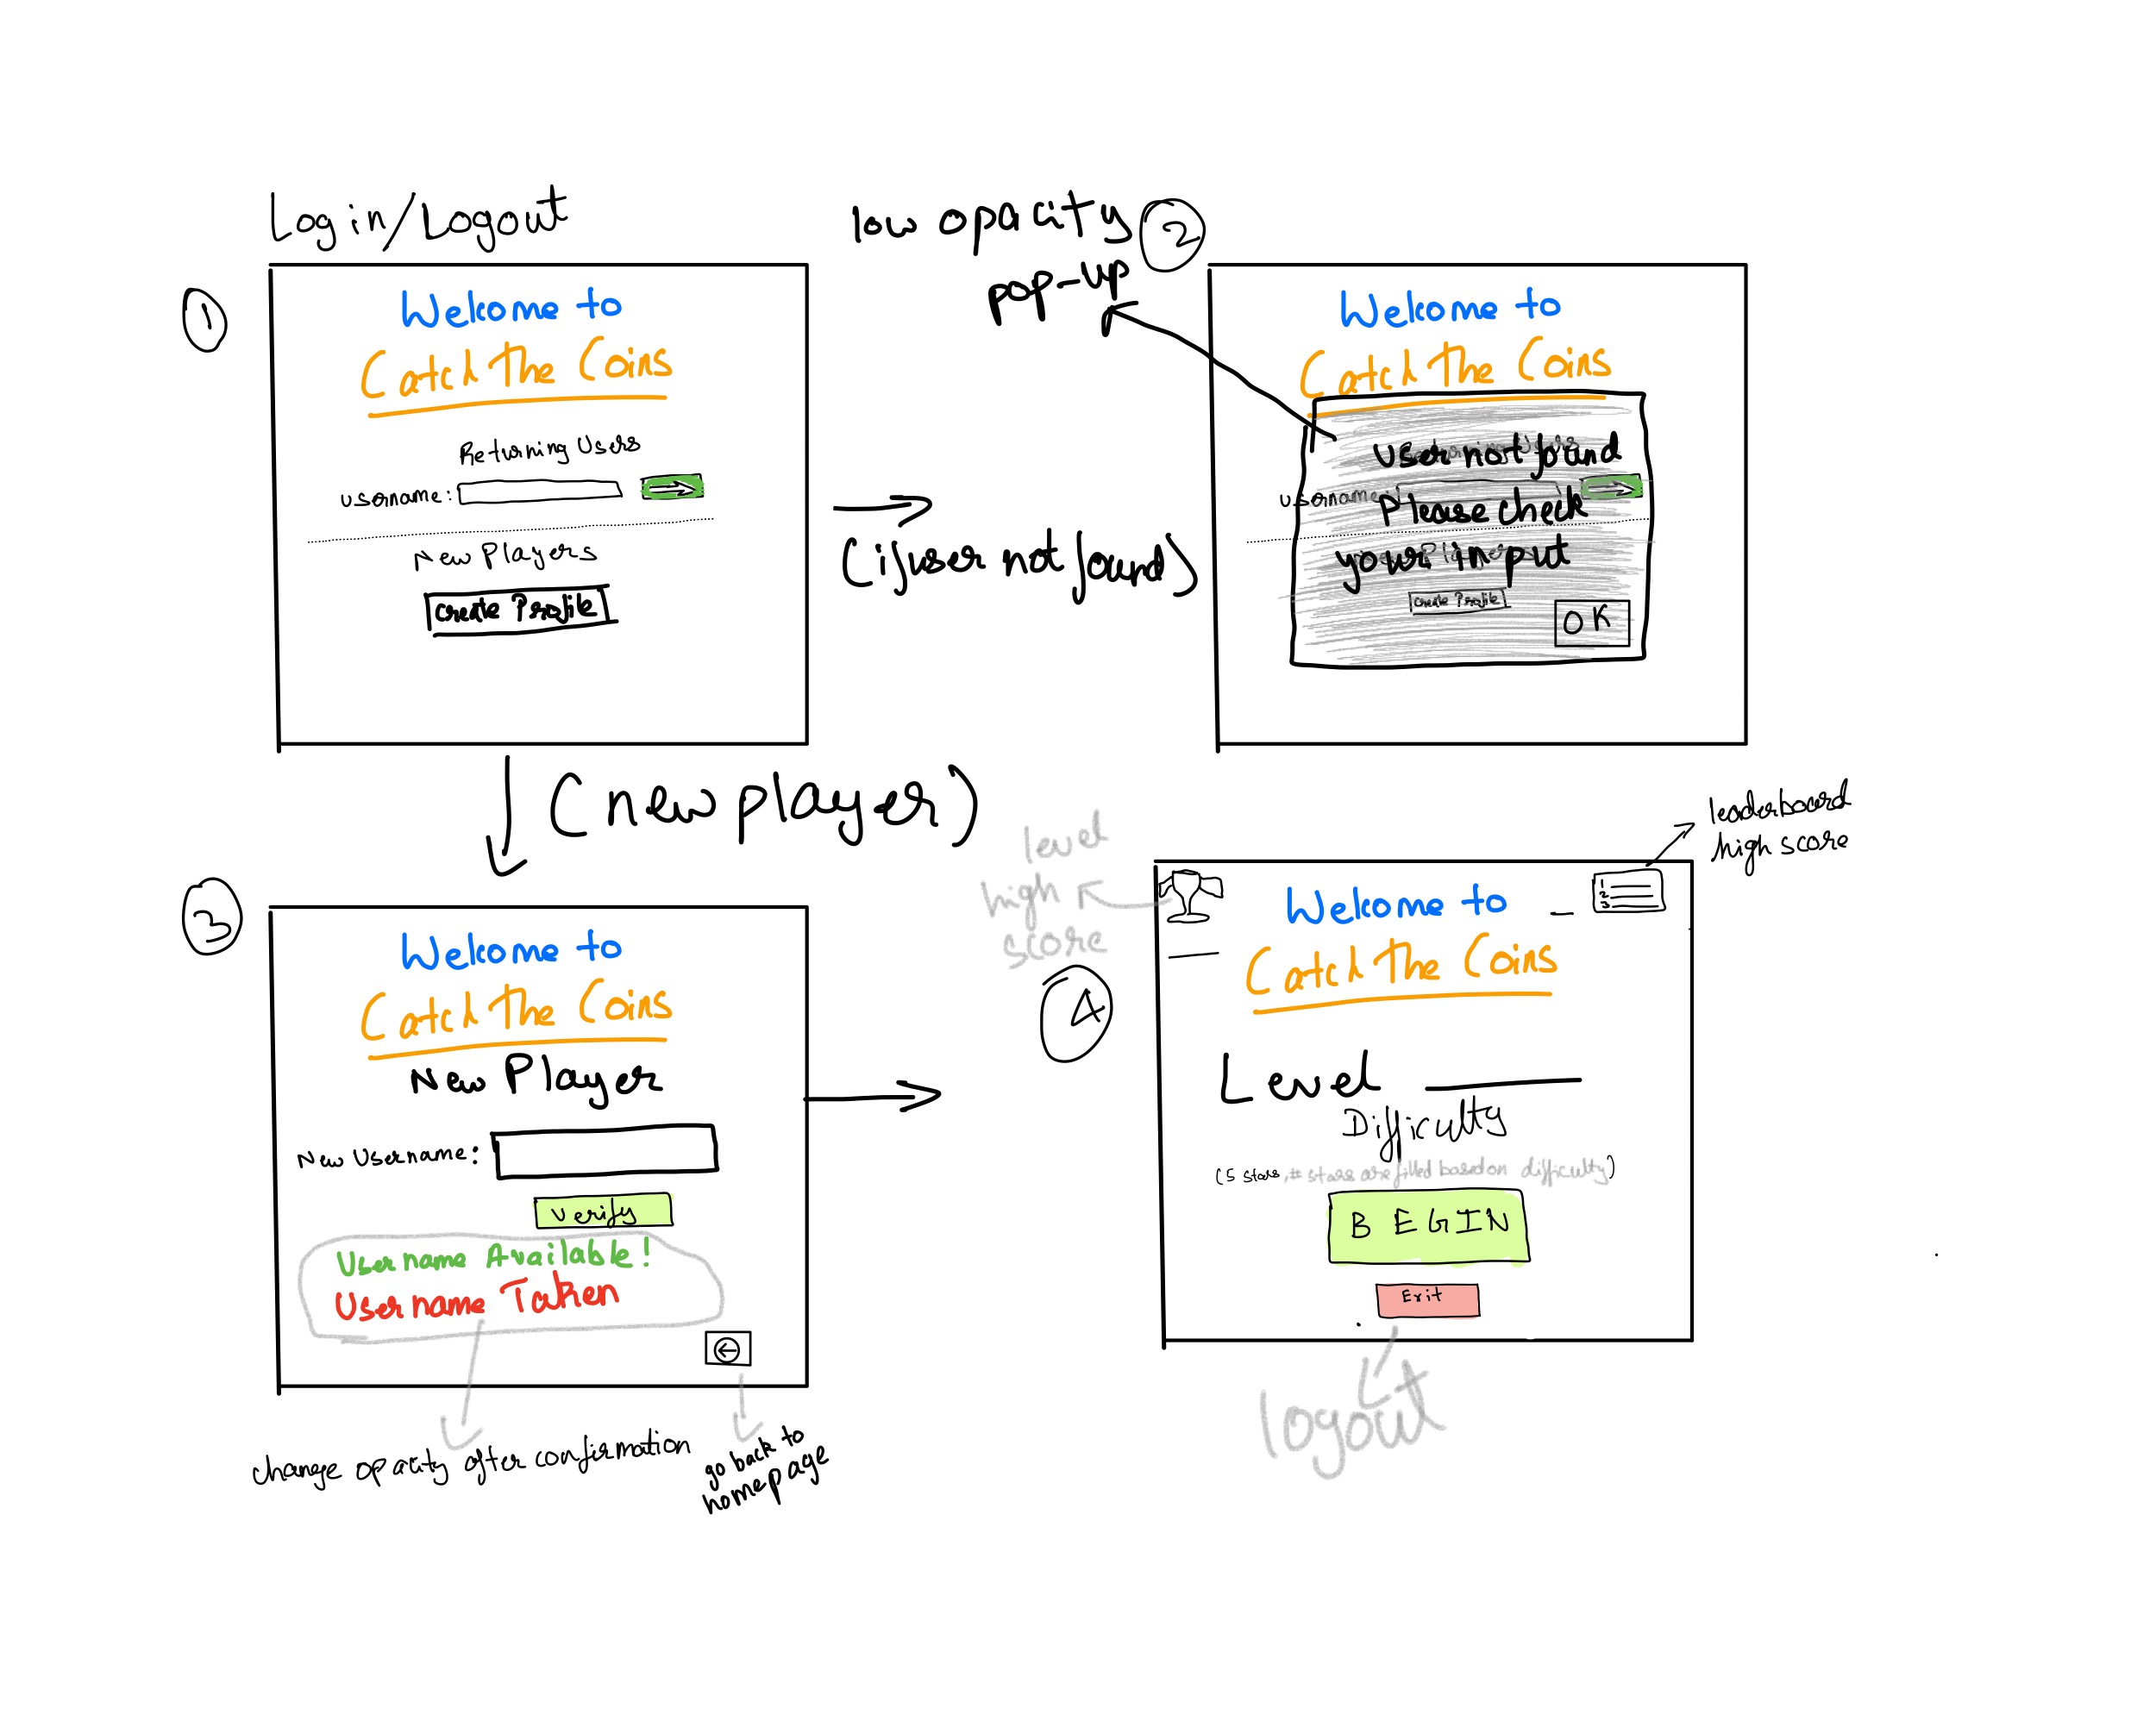 Login/Logout
1
Welcome to
Catch The Coins
Returning Users
username:
New Players
Create Profile
(if user not found)
low opacity
pop-up
2
Welcome to
Catch The Coins
User not found
username:
Please check
your input
Create Profile
OK
(new player)
3
Welcome to
Catch The Coins
New Player
New Username:
Verify
Username Available!
Username Taken
change opacity after confirmation
go back to
homepage
level
high
score
4
leaderboard
high score
1
2
3
Welcome to
Catch The Coins
Level
Difficulty
(5 stars, # stars are filled based on difficulty)
BEGIN
Exit
logout